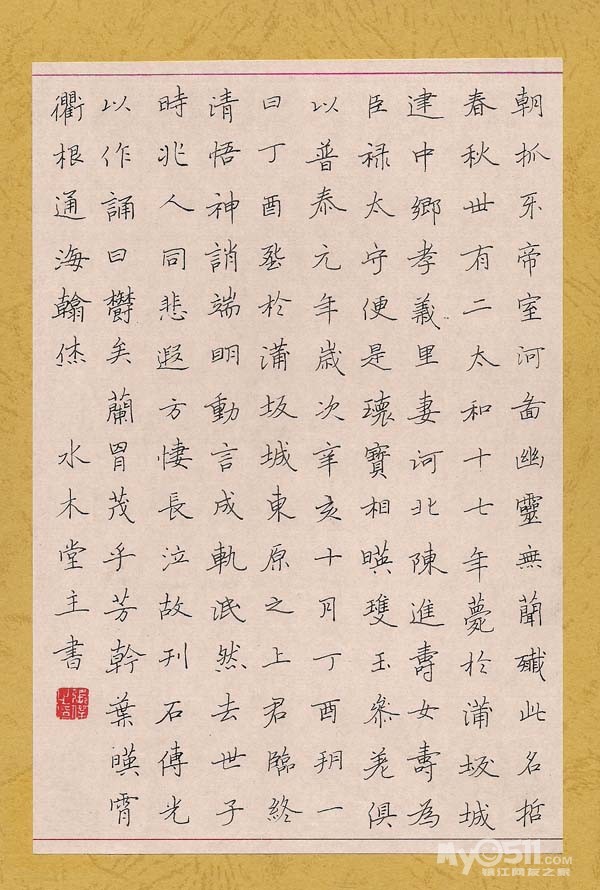 朝抓牙帝室河畣幽靈無蕳殲此名哲
春秋卌有二太和十七年薨於蒲坂城
建中鄉孝義里妻河北陳進壽女壽為
臣禄太守便是瓌寶相暎瓊玉叅差俱
以普泰元年歲次辛亥十月丁酉朔一
日丁酉塟於蒲坂城東原之上君臨終
清悟神誚端明動言成軌泯然去世子
時兆人同悲遐方悽長泣故刊石傳光
以作誦曰欝矣蘭胃茂乎芳幹葉暎霄
衢根通海翰
水木堂主書
My0511.com
镇江网友之家